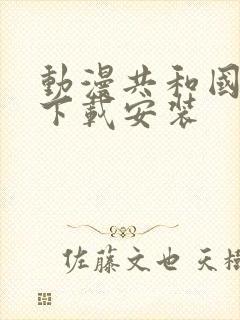 動漫共和國
下載安裝
佐藤文也 天樹